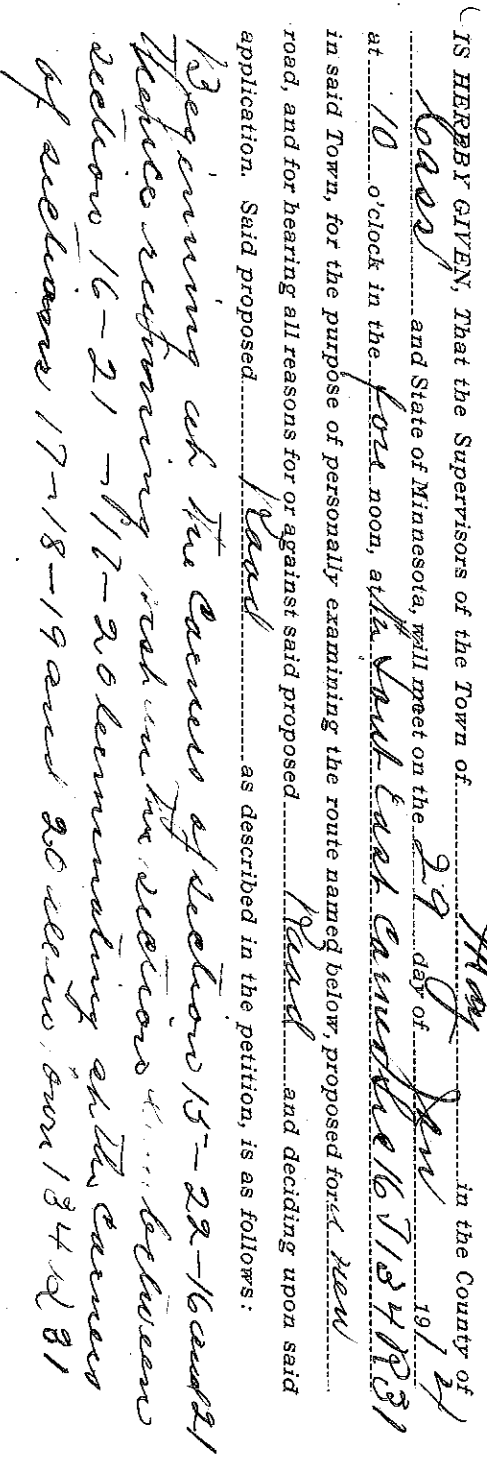 IS HEREBY GIVEN, That the Supervisors of the Town of May in the County of
Cass and State of Minnesota, will meet on the 29 day of Jan 191
at 10 o'clock in the fore noon, at the Sout East Corner Sec 16 T 134 R 31
in said Town, for the purpose of personally examining the route named below, proposed for a new
road, and for hearing all reasons for or against said proposed Road and deciding upon said
application. Said proposed Road as described in the petition, is as follows:
Beginning at the Corners of section 15-22-16 and 21
thence running section between
section 16-21-17-20 terminating at the Corners
of sections 17-18-19 and 20 134 R 31